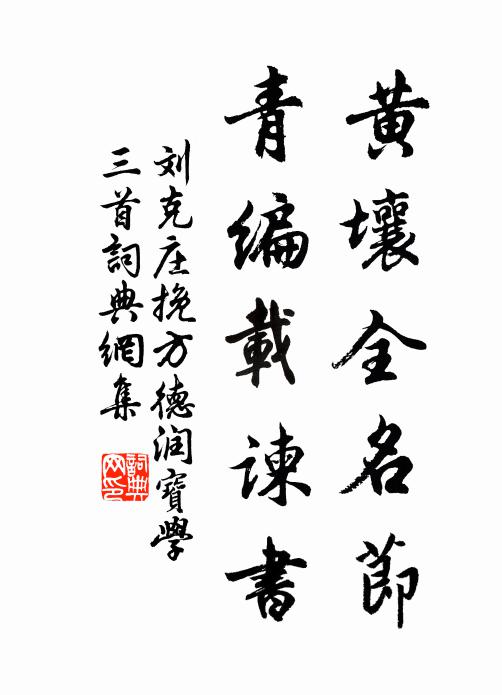 黄壤全名節
青編載諫書
刘克庄挽方德润寶學
三首詞典網集
詞典網印